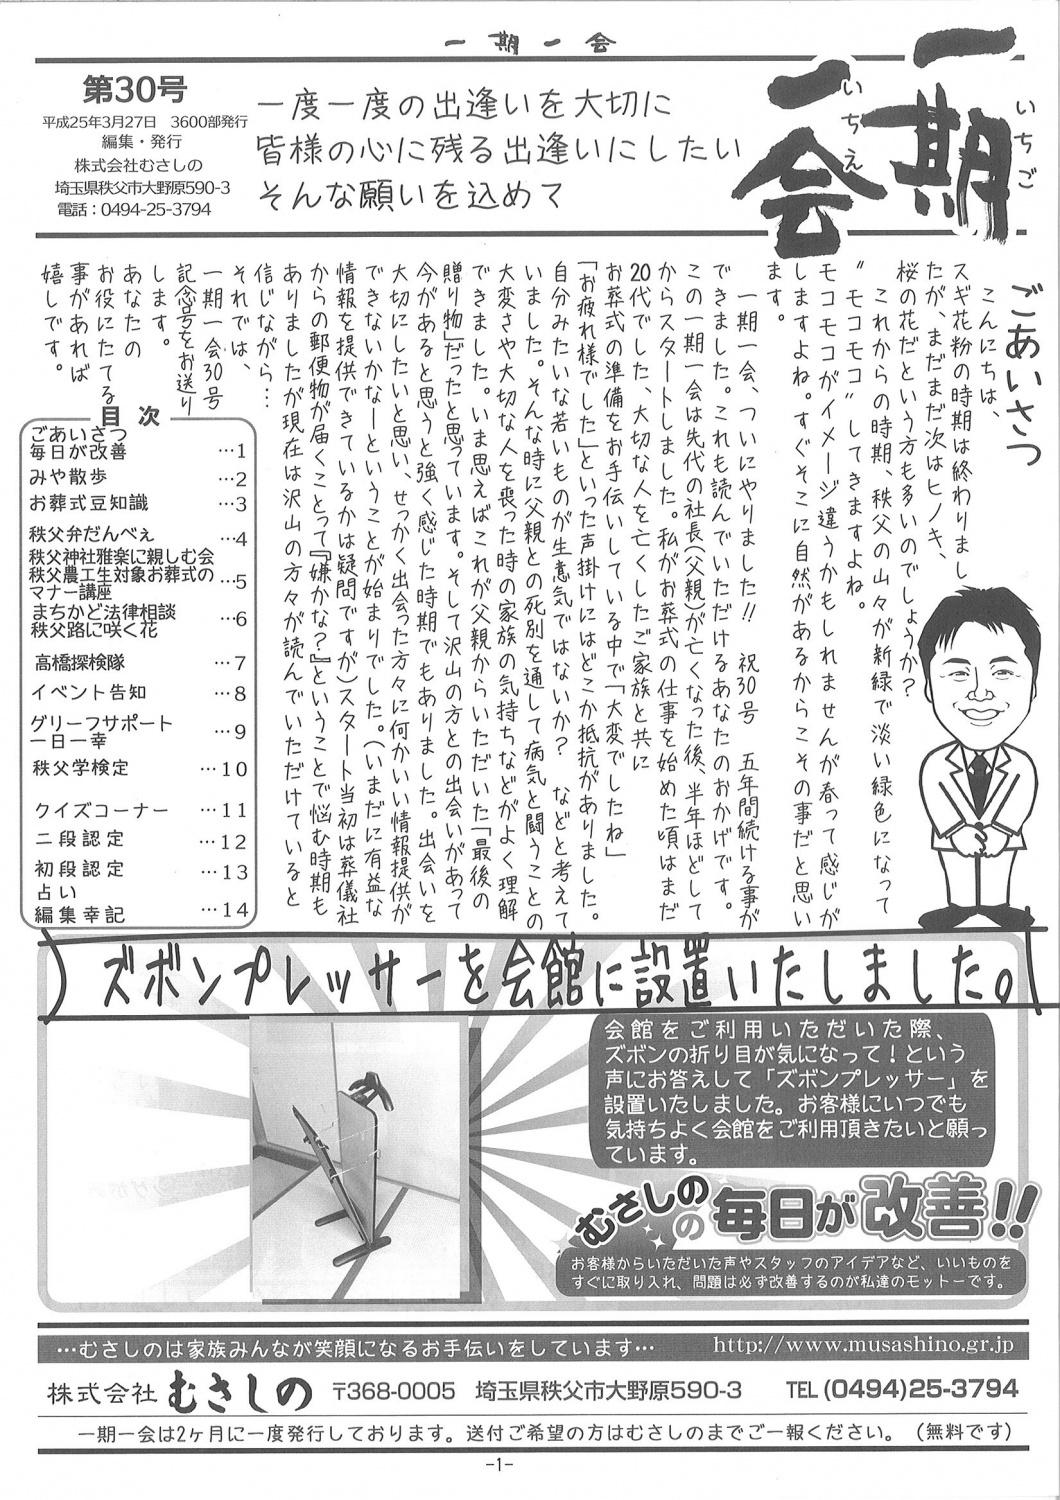 一期一会
第30号
平成25年3月27日　3600部発行
編集・発行
株式会社むさしの
埼玉県秩父市大野原590-3
電話：0494-25-3794
一度一度の出逢いを大切に
皆様の心に残る出逢いにしたい
そんな願いを込めて
一期一会
いちご
いちえ
ごあいさつ
こんにちは、
スギ花粉の時期は終わりまし
たが、まだまだ次はヒノキ、
桜の花だという方も多いのでしょうか？
これからの時期、秩父の山々が新緑で淡い緑色になって
〝モコモコ〟してきますよね。
モコモコがイメージ違うかもしれませんが春って感じが
しますよね。すぐそこに自然があるからこその事だと思い
ます。
一期一会、ついにやりました!!　祝30号　五年間続ける事が
できました。これも読んでいただけるあなたのおかげです。
この一期一会は先代の社長（父親）が亡くなった後、半年ほどして
からスタートしました。私がお葬式の仕事を始めた頃はまだ
20代でした、大切な人を亡くしたご家族と共に
お葬式の準備をお手伝いしている中で「大変でしたね」
「お疲れ様でした」といった声掛けにはどこか抵抗がありました。
自分みたいな若いものが生意気ではないか？　などと考えて
いました。そんな時に父親との死別を通して病気と闘うことの
大変さや大切な人を喪った時の家族の気持ちなどがよく理解
できました。いま思えばこれが父親からいただいた「最後の
贈り物」だったと思っています。そして沢山の方との出会いがあって
今があると思うと強く感じた時期でもありました。出会いを
大切にしたいと思い、せっかく出会った方々に何かいい情報提供が
できないかなーということが始まりでした。（いまだに有益な
情報を提供できているかは疑問ですが）スタート当初は葬儀社
からの郵便物が届くことって『嫌かな？』ということで悩む時期も
ありましたが現在は沢山の方々が読んでいただけていると
信じながら…
それでは、
一期一会30号
記念号をお送り
します。
あなたの
お役にたてる
事があれば
嬉しです。
目次
ごあいさつ
毎日が改善　…1
みや散歩　…2
お葬式豆知識　…3
秩父弁だんべぇ　…4
秩父神社雅楽に親しむ会
秩父農工生対象お葬式の
マナー講座　…5
まちかど法律相談
秩父路に咲く花　…6
高橋探検隊　…7
イベント告知　…8
グリーフサポート
一日一幸　…9
秩父学検定　…10
クイズコーナー　…11
二段認定　…12
初段認定　…13
占い
編集幸記　…14
ズボンプレッサーを会館に設置いたしました。
会館をご利用いただいた際、
ズボンの折り目が気になって！という
声にお答えして「ズボンプレッサー」を
設置いたしました。お客様にいつでも
気持ちよく会館をご利用頂きたいと願っ
ています。
むさしのの毎日が改善!!
お客様からいただいた声やスタッフのアイデアなど、いいものを
すぐに取り入れ、問題は必ず改善するのが私達のモットーです。
…むさしのは家族みんなが笑顔になるお手伝いをしています…　http://www.musashino.gr.jp
株式会社むさしの　〒368-0005　埼玉県秩父市大野原590-3　TEL(0494)25-3794
一期一会は2ヶ月に一度発行しております。送付ご希望の方はむさしのまでご一報ください。（無料です）
-1-